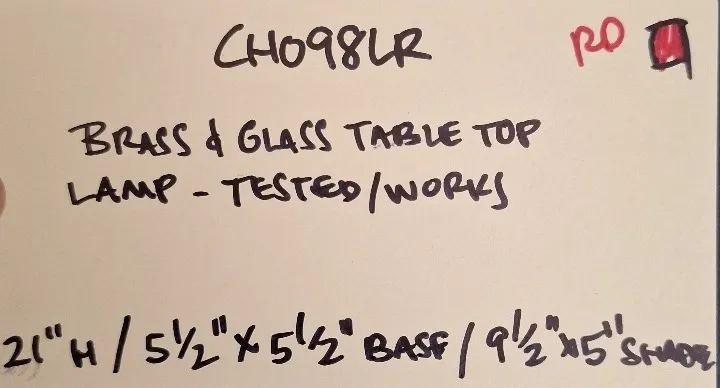 CH098LR RD
BRASS & GLASS TABLE TOP
LAMP - TESTED/WORKS
21" H / 5 1/2" X 5 1/2" BASE / 9 1/2" X 5" SHADE